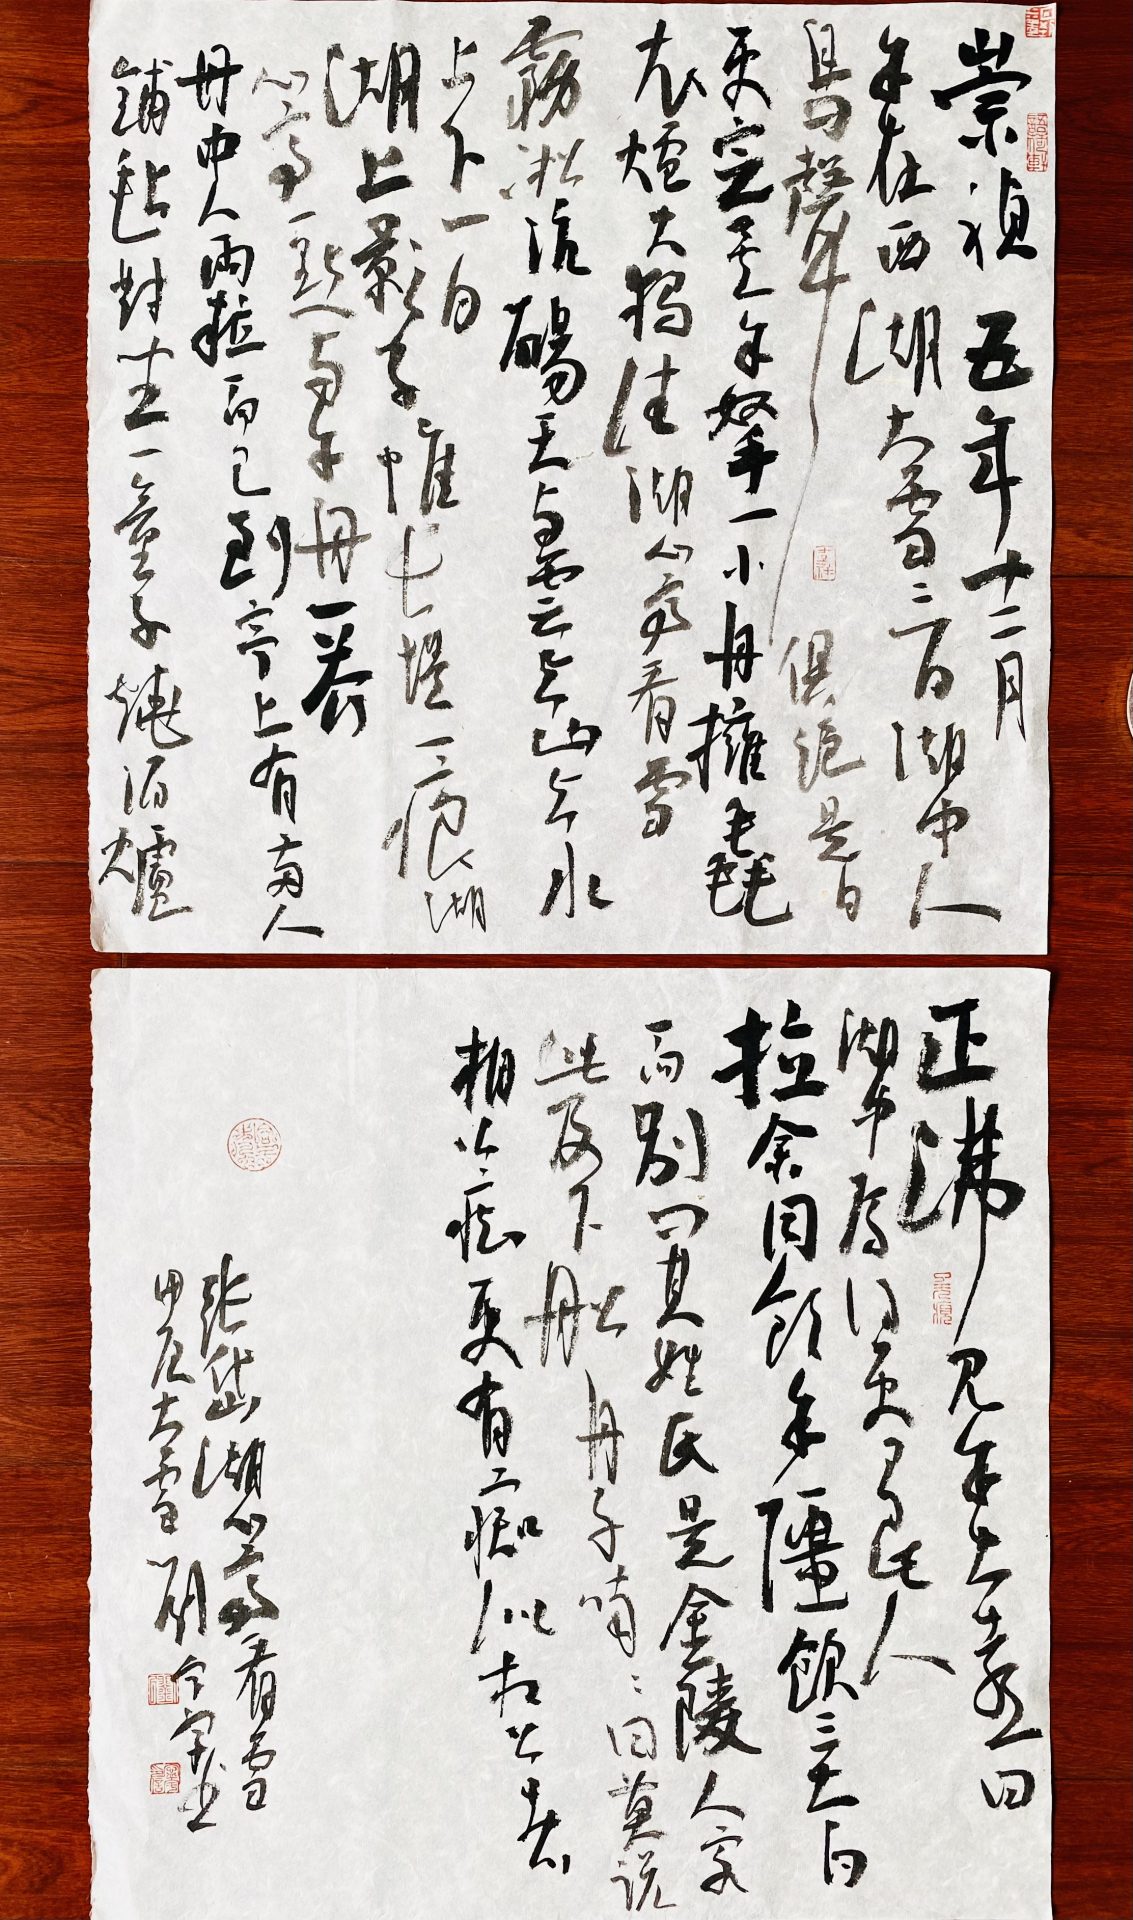 崇禎五年十二月
余住西湖大雪三日湖中人
鳥聲俱絕是日
更定矣余拏一小舟擁毳
衣爐火獨往湖心亭看雪
霧淞沆碭天與雲與山與水
上下一白
湖上影子惟長堤一痕湖
心亭一點與余舟一芥
舟中人兩粒而已到亭上有兩人
鋪氈對坐一童子燒酒爐
正沸見余大喜曰
湖中焉得更有此人
拉余同飲余彊飲三大白
而別問其姓氏是金陵人客
此及下船舟子喃喃曰莫說
相公癡更有痴似相公者
張岱湖心亭看雪
甲辰大雪